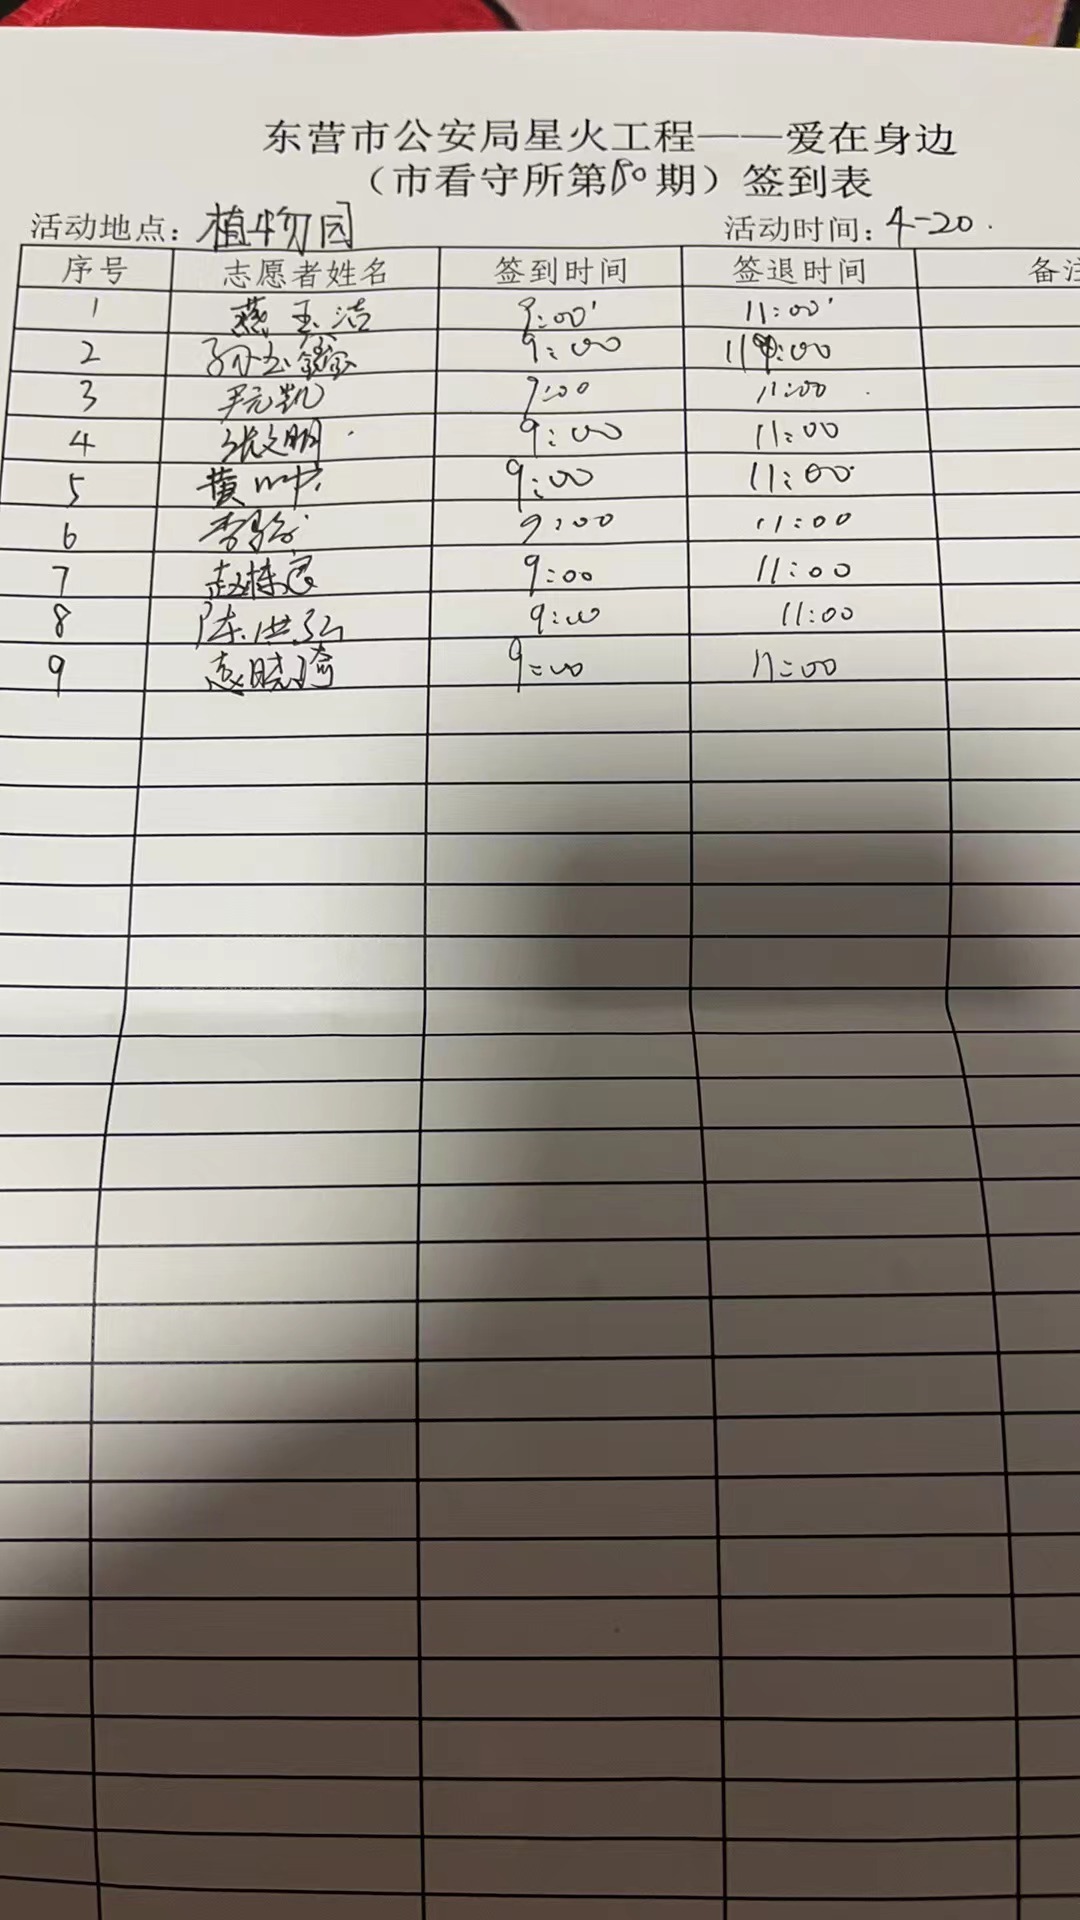 东营市公安局星火工程——爱在身边
（市看守所第80期）签到表
活动地点：植物园 活动时间：4-20.
序号 志愿者姓名 签到时间 签退时间 备注
1 燕玉洁 9:00' 11:00'
2 孙玉鑫 9:00 11:00
3 尹元凯 9:00 11:00
4 张文明 9:00 11:00
5 黄 9:00 11:00
6 李 9:00 11:00
7 赵栋 9:00 11:00
8 陈洪弘 9:00 11:00
9 晓琦 9:00 11:00